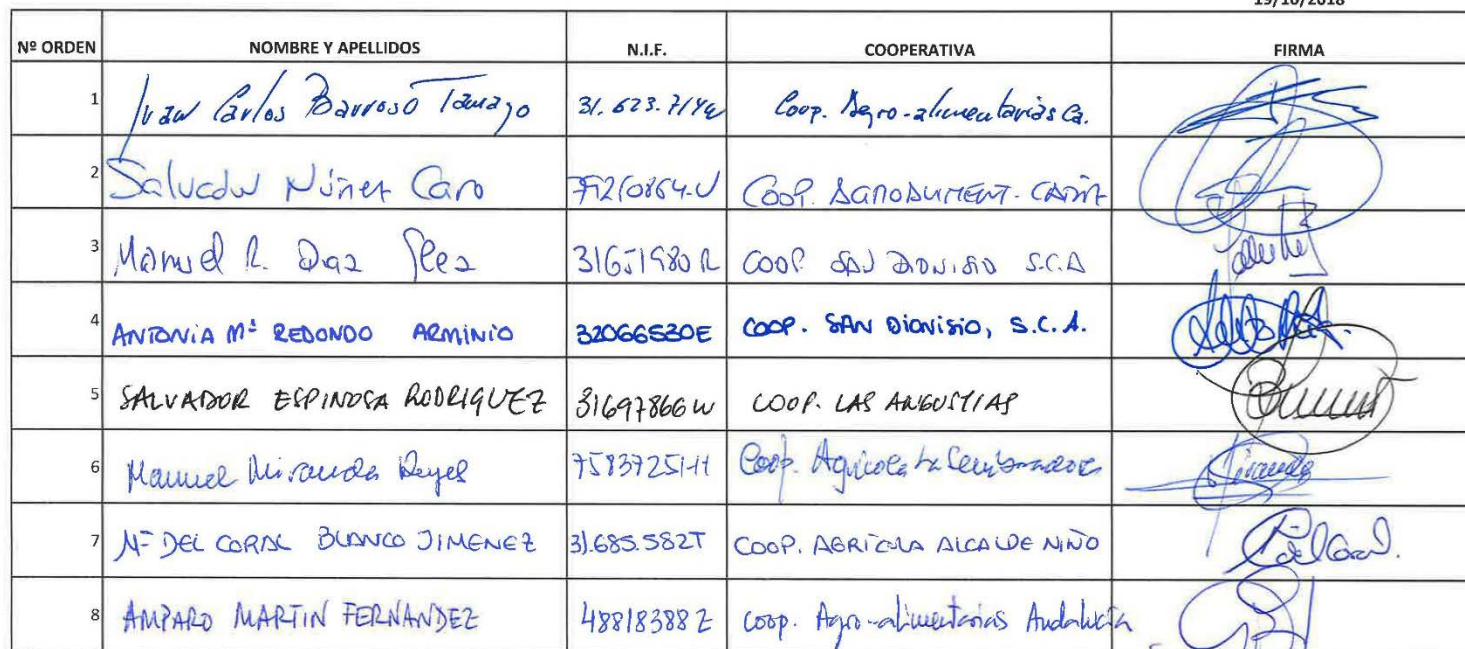 19/10/2018
Nº ORDEN NOMBRE Y APELLIDOS N.I.F. COOPERATIVA FIRMA
1 Juan Carlos Barroso Tamayo Coop. Agro-alimentarias Ca.
2 Salvador Núñez Caro COOP.
3 Manuel R. Diaz 31651980R COOP. SAN DIONISIO S.C.A
4 ANTONIA Mª REDONDO ARMINIO 32066530E COOP. SAN DIONISIO, S.C.A.
5 SALVADOR ESPINOSA RODRIGUEZ 31697866W COOP. LAS ANGUSTIAS
6 Manuel Miranda Reyes 75837251H Coop. Agricola
7 Mª DEL CORAL BLANCO JIMENEZ 31.685.582T COOP. AGRÍCOLA ALCALDE NIÑO
8 AMPARO MARTIN FERNANDEZ 48818388Z Coop. Agro-alimentarias Andalucía